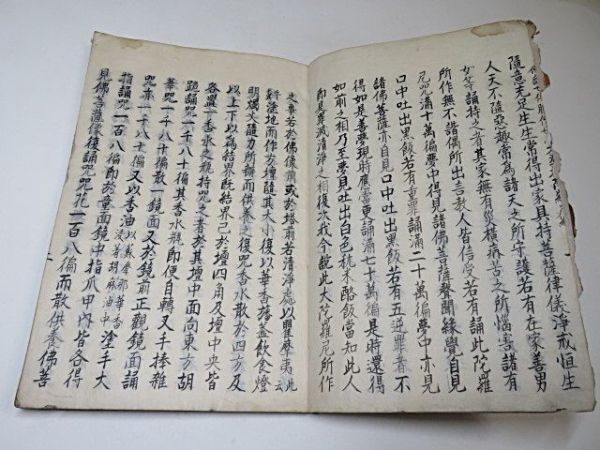 隨意充足生生常得出家具持菩薩律儀淨戒恒生
人天不墮惡趣常為諸天之所守護若有在家善男
女等誦持之者其家無有災橫病苦之所惱害諸有
所作無不諧偶所出言教人皆信受若有誦此陀羅
尼咒滿十萬徧夢中得見諸佛菩薩聲聞緣覺自見
口中吐出黑飯若有重罪誦滿二十萬徧夢中亦見
諸佛菩薩亦自見口中吐出黑飯若有五逆罪者不
得如是善夢現時應當更誦滿七十萬徧是時還得
如前之相乃至夢見吐出白色粳米酪飯當知此人
即是罪滅清淨之相復次我今說此大陀羅尼所作
之事若於佛像前或於塔前若清淨處以瞿摩夷此云
塗地而作方壇隨其大小復以華香幡蓋飲食燈
明燭火隨力所辦而供養之復咒香水散於四方及
以上下以為結界既結界已於壇四角及壇中央皆
各置一香水之瓶持咒之者於其壇中面向東方胡
跪誦咒一千八十徧其香水瓶即便自轉又手捧雜
華咒一千八十徧散一鏡面又於鏡前正觀鏡面誦
咒亦一千八十徧又以香油以蘇摩那華香胡麻油中塗手大
指誦咒一百八徧即於童面鏡中指爪甲內皆各得
見佛菩薩像復誦咒咒花一百八徧而散供養佛菩